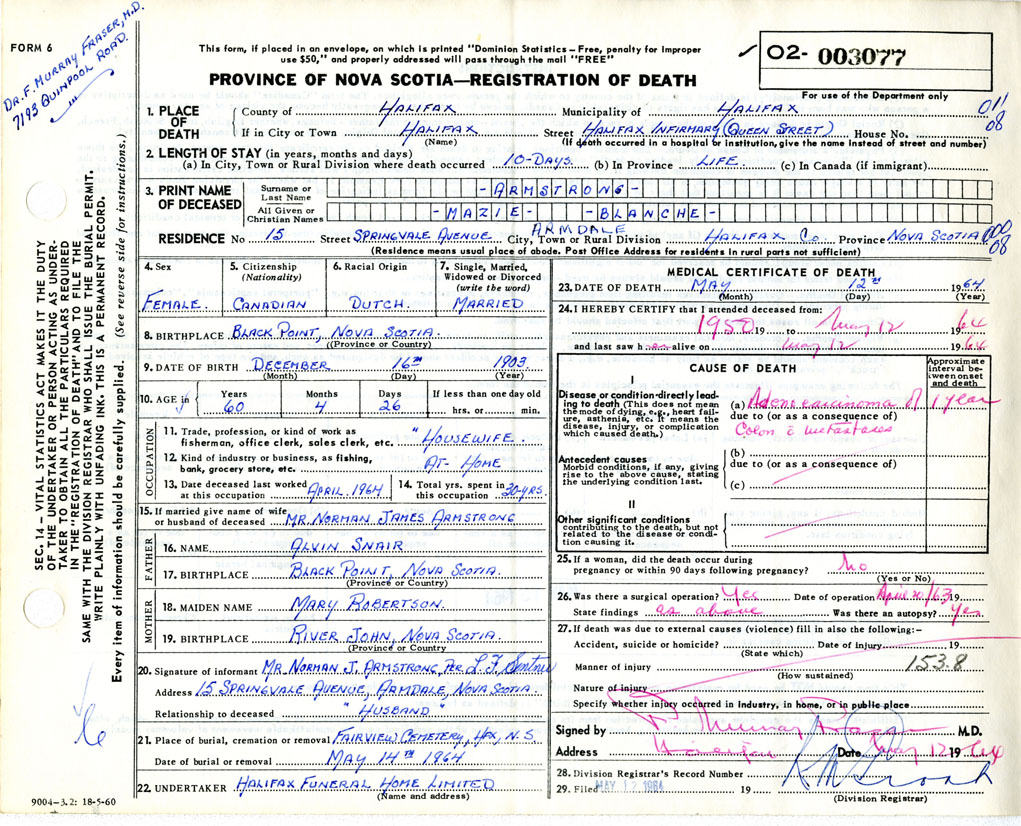 FORM 6
DR. F. MURRAY FRASER, M.D.
7193 QUINPOOL ROAD.
This form, if placed in an envelope, on which is printed "Dominion Statistics – Free, penalty for improper
use $50," and properly addressed will pass through the mail "FREE"
PROVINCE OF NOVA SCOTIA—REGISTRATION OF DEATH
02- 003077
For use of the Department only
011
08
1. PLACE OF DEATH
County of HALIFAX Municipality of HALIFAX
If in City or Town HALIFAX Street HALIFAX INFIRMARY (QUEEN STREET) House No.
(Name) (If death occurred in a hospital or institution, give the name instead of street and number)
2. LENGTH OF STAY (in years, months and days)
(a) In City, Town or Rural Division where death occurred 10-DAYS. (b) In Province LIFE. (c) In Canada (if immigrant)
3. PRINT NAME OF DECEASED
Surname or Last Name -ARMSTRONG-
All Given or Christian Names -MAZIE- -BLANCHE-
ARMDALE
RESIDENCE No 15 Street SPRINGVALE AVENUE City, Town or Rural Division HALIFAX Co Province NOVA SCOTIA 000
08
(Residence means usual place of abode. Post Office Address for residents in rural parts not sufficient)
4. Sex
FEMALE.
5. Citizenship (Nationality)
CANADIAN
6. Racial Origin
DUTCH.
7. Single, Married, Widowed or Divorced (write the word)
MARRIED
8. BIRTHPLACE BLACK POINT, NOVA SCOTIA.
(Province or Country)
9. DATE OF BIRTH DECEMBER 16TH 1903
(Month) (Day) (Year)
10. AGE in Years Months Days If less than one day old
60 4 26 hrs. or min.
OCCUPATION
11. Trade, profession, or kind of work as
fisherman, office clerk, sales clerk, etc. "HOUSEWIFE.
12. Kind of industry or business, as fishing,
bank, grocery store, etc. AT- HOME
13. Date deceased last worked
at this occupation APRIL. 1964
14. Total yrs. spent in
this occupation 30-YRS.
15. If married give name of wife
or husband of deceased MR. NORMAN JAMES ARMSTRONG
FATHER
16. NAME ALVIN SNAIR
17. BIRTHPLACE BLACK POINT, NOVA SCOTIA.
(Province or Country)
MOTHER
18. MAIDEN NAME MARY ROBERTSON.
19. BIRTHPLACE RIVER JOHN, NOVA SCOTIA.
(Province or Country)
20. Signature of informant MR. NORMAN J. ARMSTRONG, PER L.F.
Address 15 SPRINGVALE AVENUE, ARMDALE, NOVA SCOTIA.
Relationship to deceased " HUSBAND "
21. Place of burial, cremation or removal FAIRVIEW CEMETERY, HFX, N.S.
Date of burial or removal MAY 14TH 1964
22. UNDERTAKER HALIFAX FUNERAL HOME LIMITED
(Name and address)
9004–3.2: 18-5-60
MEDICAL CERTIFICATE OF DEATH
23. DATE OF DEATH MAY 12TH 1964
(Month) (Day) (Year)
24. I HEREBY CERTIFY that I attended deceased from:
1950 19 to May 12 1964
and last saw h er alive on May 12 1964
CAUSE OF DEATH
Approximate interval between onset and death
I
Disease or condition directly leading to death (This does not mean the mode of dying, e.g., heart failure, asthenia, etc. It means the disease, injury, or complication which caused death.)
(a) Adenocarcinoma of 1 year
due to (or as a consequence of)
Colon c̄ metastases
Antecedent causes
Morbid conditions, if any, giving rise to the above cause, stating the underlying condition last.
(b)
due to (or as a consequence of)
(c)
II
Other significant conditions
contributing to the death, but not related to the disease or condition causing it.
25. If a woman, did the death occur during
pregnancy or within 90 days following pregnancy? No
(Yes or No)
26. Was there a surgical operation? Yes Date of operation April 20/63 19
State findings as above Was there an autopsy? Yes
27. If death was due to external causes (violence) fill in also the following:–
Accident, suicide or homicide? Date of injury 19
(State which)
Manner of injury 153.8
(How sustained)
Nature of injury
Specify whether injury occurred in Industry, in home, or in public place
Signed by F Murray Fraser M.D.
Address Date May 12 1964
28. Division Registrar's Record Number
29. Filed MAY 12 1964 19
(Division Registrar)
SEC. 14 – VITAL STATISTICS ACT MAKES IT THE DUTY
OF THE UNDERTAKER OR PERSON ACTING AS UNDER-
TAKER TO OBTAIN ALL THE PARTICULARS REQUIRED
IN THE "REGISTRATION OF DEATH" AND TO FILE THE
SAME WITH THE DIVISION REGISTRAR WHO SHALL ISSUE THE BURIAL PERMIT.
WRITE PLAINLY WITH UNFADING INK. THIS IS A PERMANENT RECORD.
Every item of information should be carefully supplied. (See reverse side for instructions.)